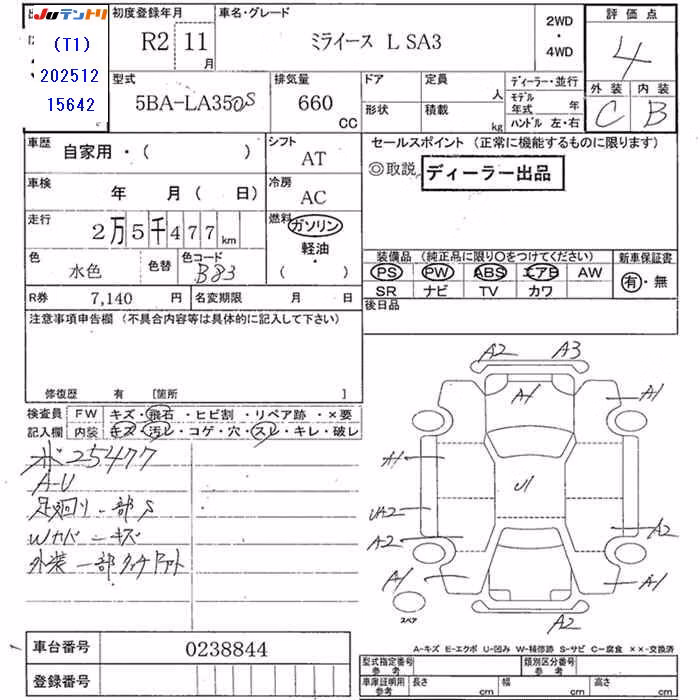 Juテントリ
(T1)
202512
15642
初度登録年月
R2 11月
車名・グレード
ミライース L SA3
2WD
・
4WD
評価点
4
外装 内装
C B
型式
5BA-LA350S
排気量
660
CC
ドア
形状
定員
人
積載
kg
ディーラー・並行
モデル
年式 年
ハンドル 左・右
車歴
自家用・( )
シフト
AT
車検
年 月( 日)
冷房
AC
走行
2万5千477km
燃料
ガソリン
軽油・
( )
色
水色
色替
色コード
B83
R券 7,140 円
名変期限 月 日
セールスポイント (正常に機能するものに限ります)
◎取説 ディーラー出品
装備品 (純正品に限り〇をつけてください)
PS PW ABS エアB AW
SR ナビ TV カワ
新車保証書
有・無
後日品
注意事項申告欄 (不具合内容等は具体的に記入して下さい)
修復歴 有 [箇所 ]
検査員
記入欄
FW キズ・飛石・ヒビ割・リペア跡・×要
内装 キズ・汚レ・コゲ・穴・スレ・キレ・破レ
25477
A-U
足廻り一部S
Wカバーキズ
外装一部タッチアト
A2 A3
A1
A1
A1
U1
UA2
A2
A2
A1
A1
A2
スペア
A-キズ E-エクボ U-凹み W-補修跡 S-サビ C-腐食 ××-交換済
車台番号 0238844
登録番号
型式指定番号
参考
類別区分番号
参考
車庫証明用
参考
長さ cm 幅 cm 高さ cm